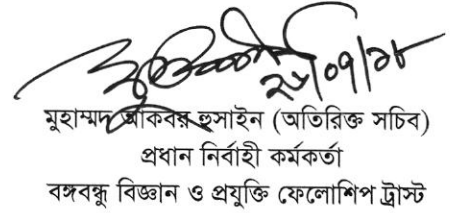 ২৮/০৭/১৮
মুহাম্মদ আকিবর হুসাইন (অতিরিক্ত সচিব)
প্রধান নির্বাহী কর্মকর্তা
বঙ্গবন্ধু বিজ্ঞান ও প্রযুক্তি ফেলোশিপ ট্রাস্ট